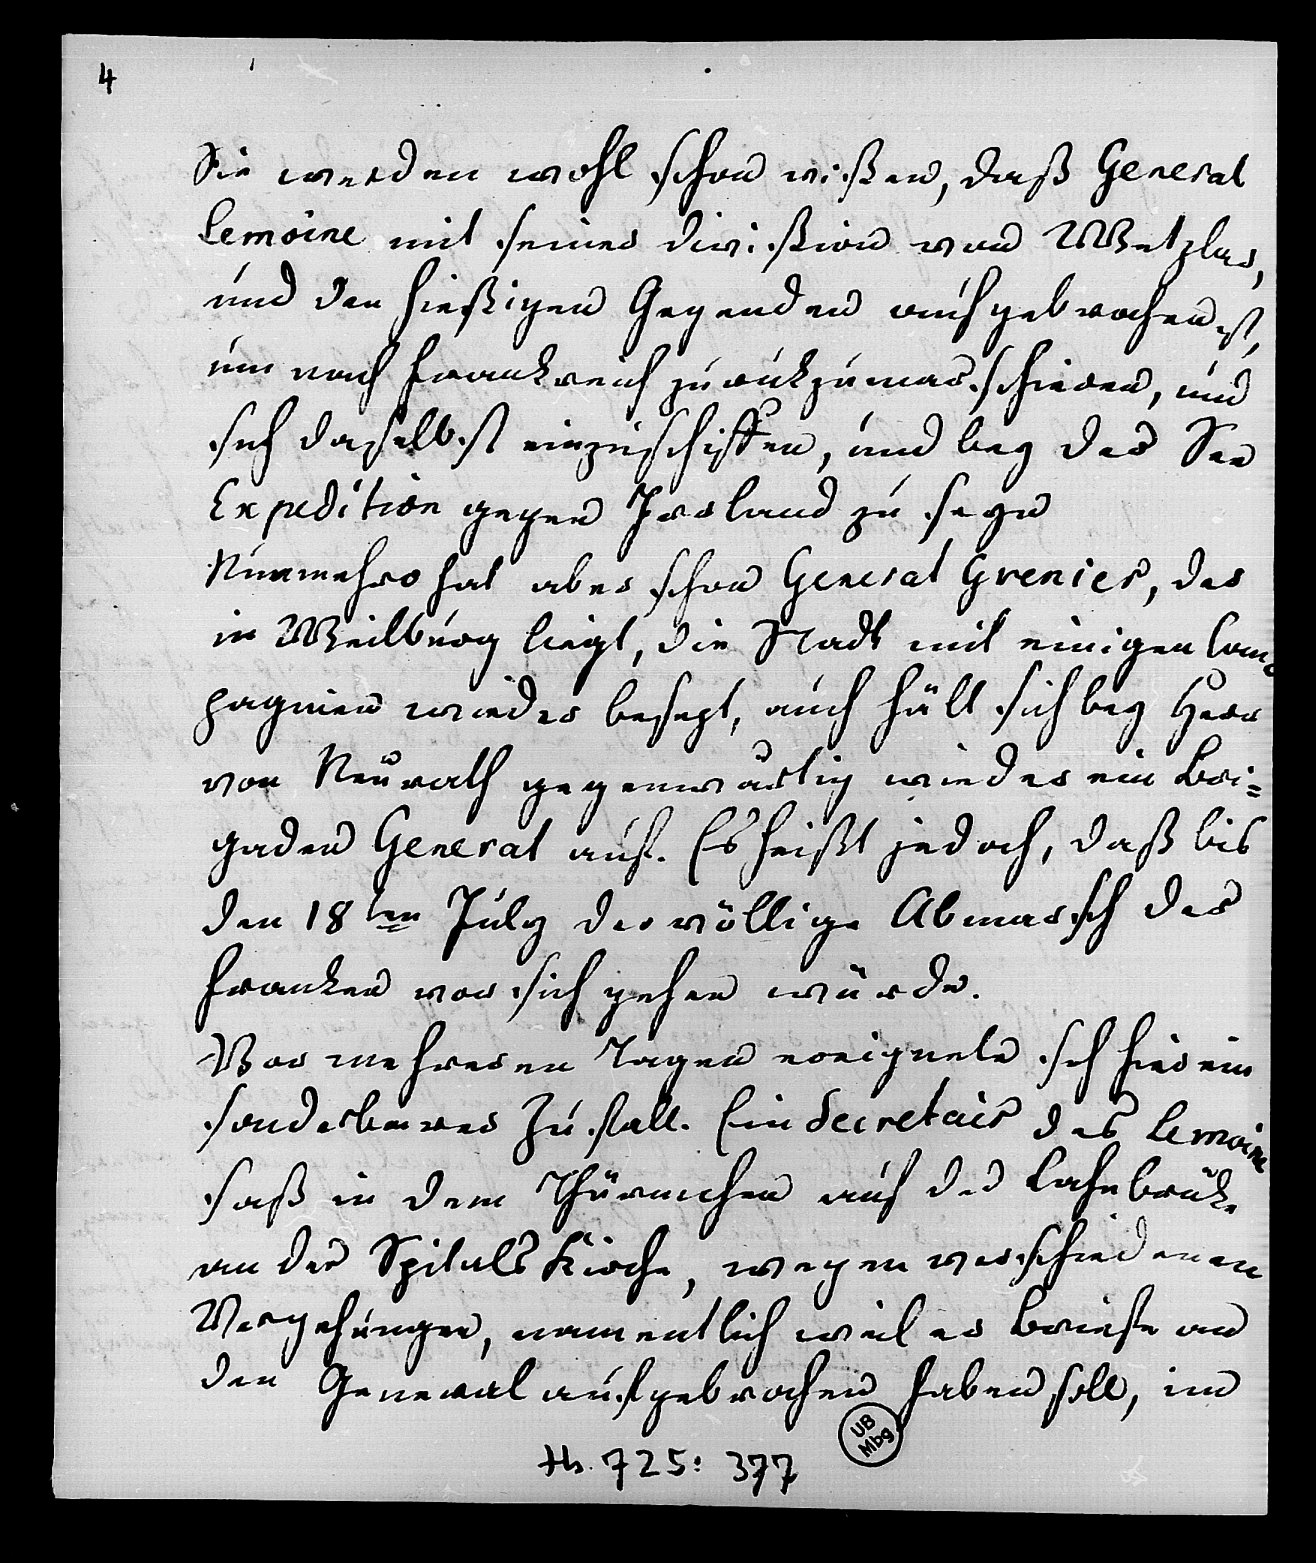 4
Sie werden wohl schon wißen, daß General
Lemoine mit seiner Divißion von Wetzlar,
und den hießigen Gegenden aufgebrochen ist,
um nach Frankreich zurükzumarschieren, und
sich daselbst einzuschiffen, und bey der See
Expedition gegen Irrland zu seyn
Nunmehro hat aber schon General Grenier, der
in Weilburg liegt, die Stadt mit einigen Com
pagnien wieder besezt, auch hält sich bey Herr
von Neurath gegenwärtig wieder ein Bri=
gaden General auf. Es heißt jedoch, daß bis
den 18ten July der völlige Abmarsch der
Franken vor sich gehen würde.
Vor mehreren Tagen ereignete sich hier ein
sonderbarer Zufall. Ein Secretair des Lemoine
saß in dem Thürmchen auf der Lahnbrüke
an der Spitals Kirche, wegen verschiedenen
Vergehungen, namentlich weil er Briefe an
den General aufgebrochen haben soll, im
UB
Mbg
Hs. 725: 377